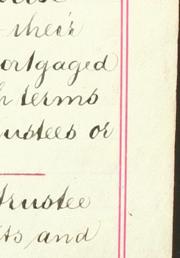 their
mortgaged
terms
trustees or
trustee
and